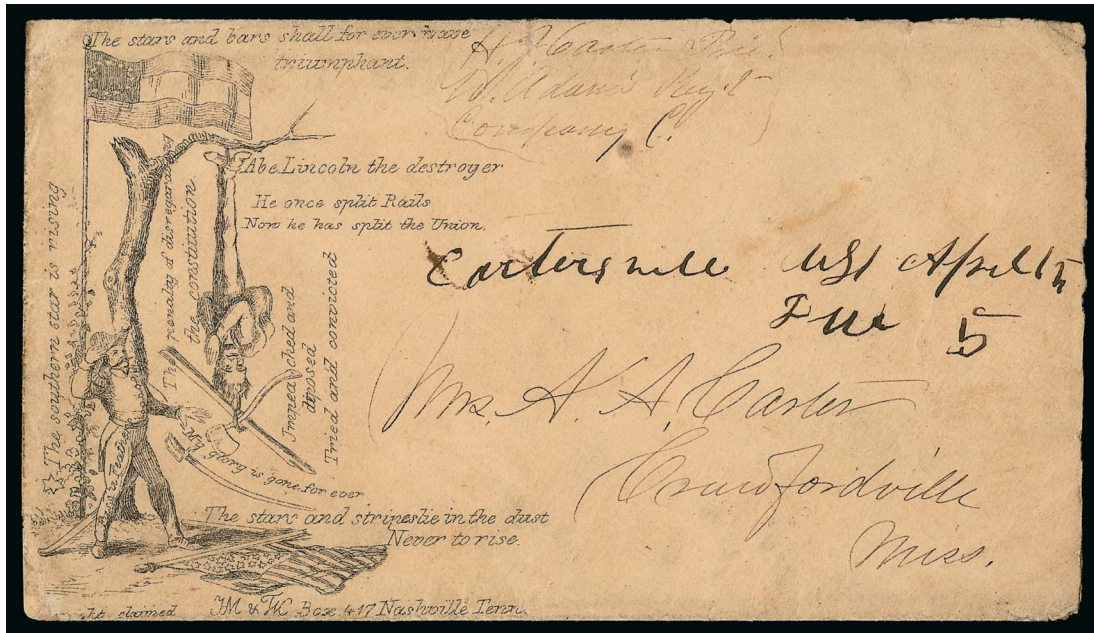 The stars and bars shall for ever wave
triumphant.
H. Carter
Williams Regt
Company C.
Abe Lincoln the destroyer
He once split Rails
Now he has split the Union.
The southern star is rising
The penalty of disregarding
the constitution
Impeached and
diposed
Tried and convicted
My glory is gone for ever
The stars and stripes lie in the dust
Never to rise.
JM & HC Box 417 Nashville Tenn.
ht claimed
Cartersville April 15
Due 5
Mrs. A. A. Carter
Crawfordville
Miss.